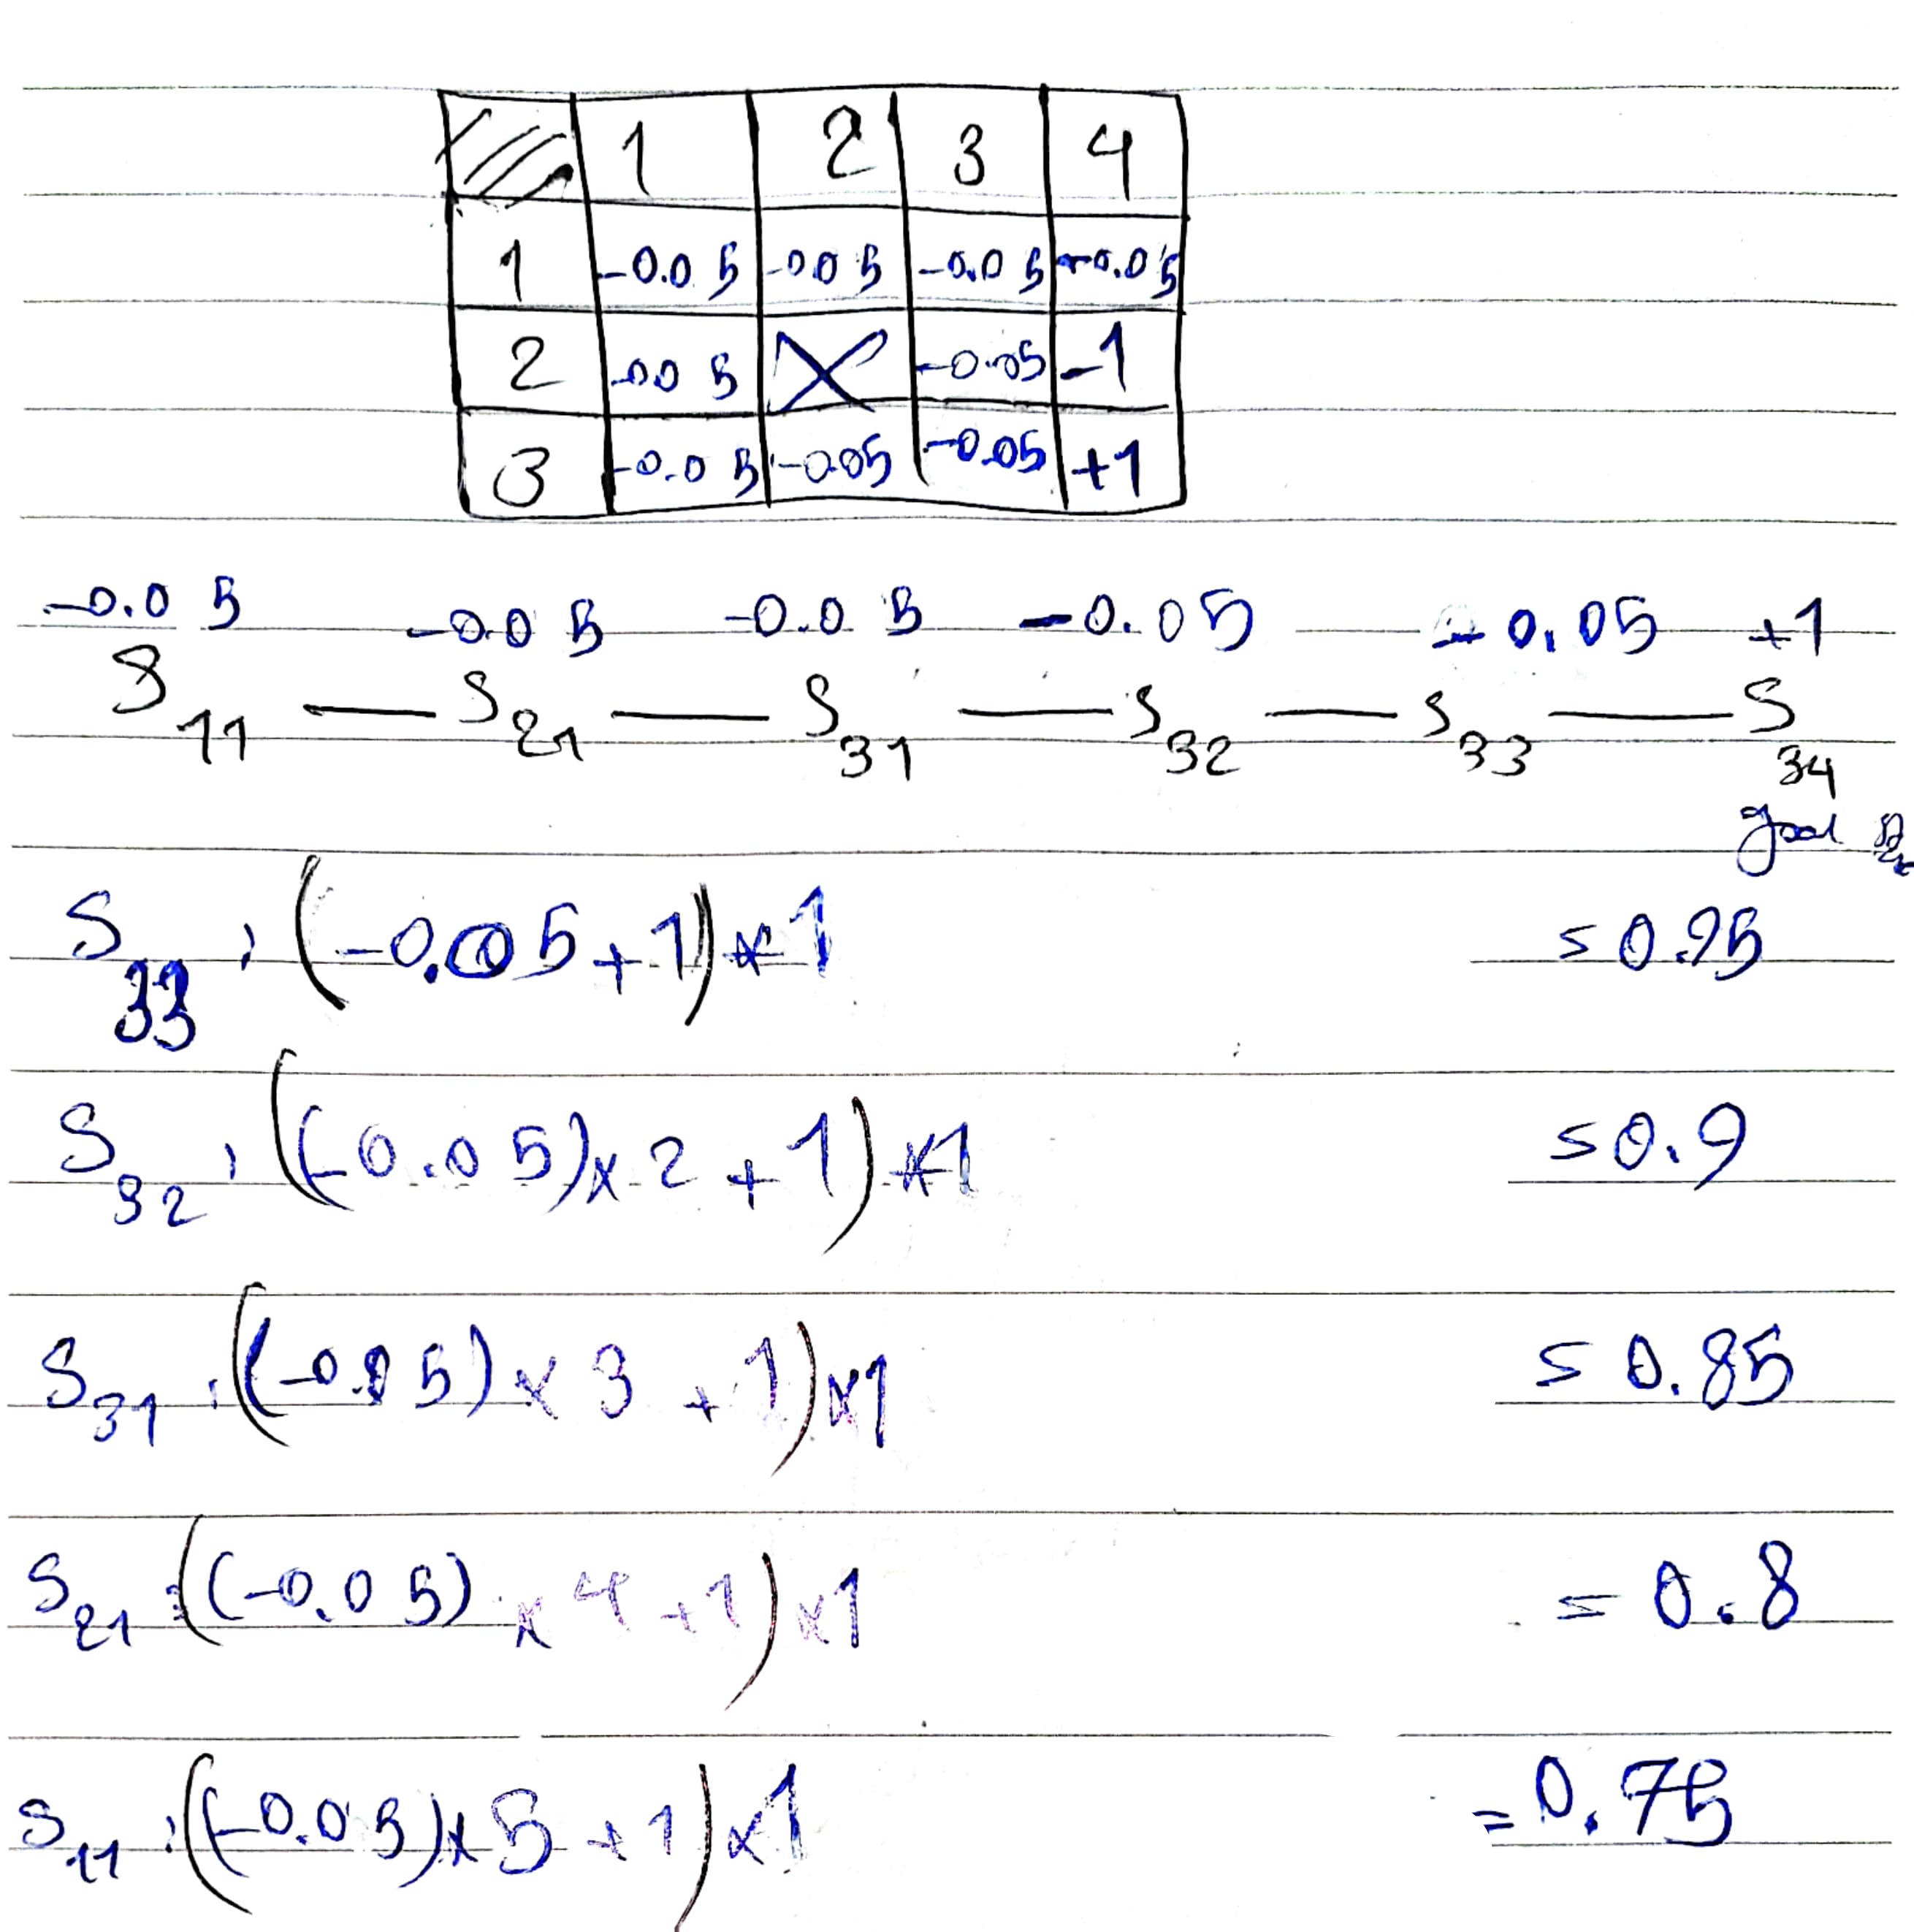 1 2 3 4
1 -0.05 -0.05 -0.05 -0.05
2 -0.05 X -0.05 -1
3 -0.05 -0.05 -0.05 +1
-0.05 -0.05 -0.05 -0.05 -0.05 +1
S11 — S21 — S31 — S32 — S33 — S34
goal
S33 : (-0.05+1)*1 = 0.95
S32 : ((-0.05)x2+1)*1 = 0.9
S31 : ((-0.05)x3+1)x1 = 0.85
S21 : ((-0.05)x4+1)x1 = 0.8
S11 : ((-0.05)x5+1)x1 = 0.75